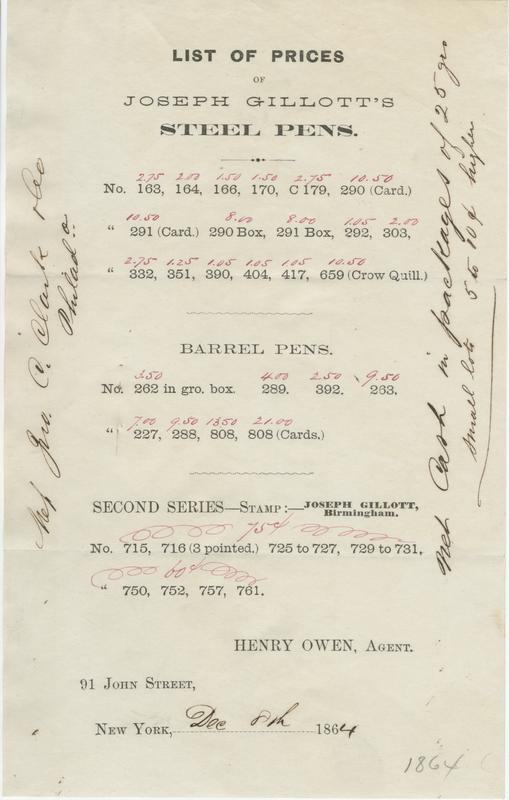 LIST OF PRICES
OF
JOSEPH GILLOTT'S
STEEL PENS.
2.75 2.00 1.50 1.50 2.75 10.50
No. 163, 164, 166, 170, C 179, 290 (Card.)
10.50 8.00 8.00 1.05 2.00
" 291 (Card.) 290 Box, 291 Box, 292, 303,
2.75 1.25 1.05 1.05 1.05 10.50
" 332, 351, 390, 404, 417, 659 (Crow Quill.)
BARREL PENS.
3.50 4.00 2.50 9.50
No. 262 in gro. box. 289. 392. 263,
7.00 9.50 13.50 21.00
" 227, 288, 808, 808 (Cards.)
SECOND SERIES—STAMP:—JOSEPH GILLOTT,
Birmingham.
75¢
No. 715, 716 (3 pointed.) 725 to 727, 729 to 731,
60¢
" 750, 752, 757, 761.
HENRY OWEN, AGENT.
91 JOHN STREET,
NEW YORK, Dec 8th 1864
1864
Jno. C. Clark
Philad
Net Cash in packages of 25 gro
small lots 5 to 10¢ higher